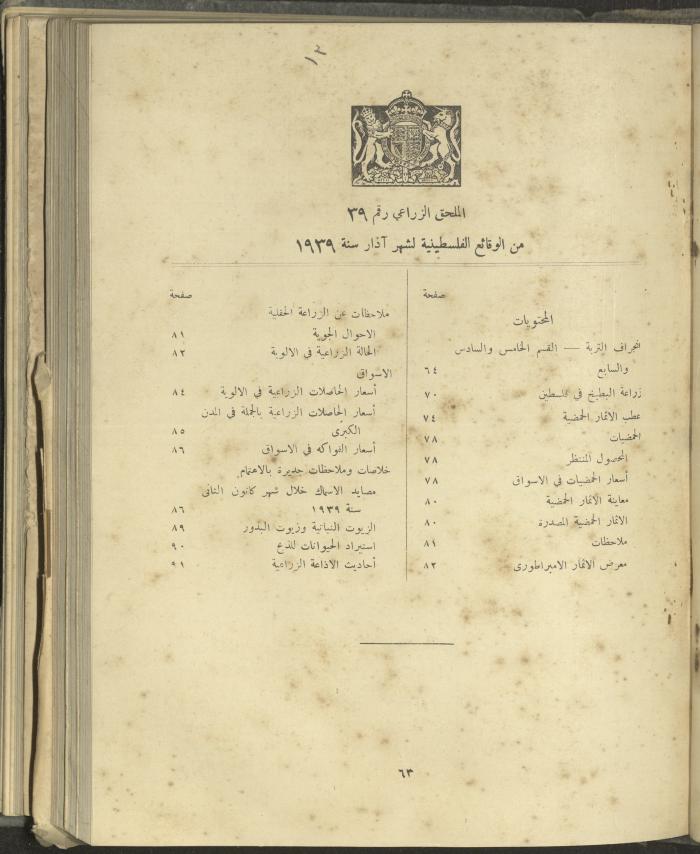 ١٣
الملحق الزراعي رقم ٣٩
من الوقائع الفلسطينية لشهر آذار سنة ١٩٣٩
صفحة
المحتويات
انجراف التربة — القسم الخامس والسادس
والسابع ٦٤
زراعة البطيخ في فلسطين ٧٠
عطب الاثمار الحمضية ٧٤
الحمضيات ٧٨
المحصول المنتظر ٧٨
أسعار الحمضيات في الاسواق ٧٨
معاينة الاثمار الحمضية ٨٠
الاثمار الحمضية المصدرة ٨٠
ملاحظات ٨١
معرض الاثمار الامبراطورى ٨٢
صفحة
ملاحظات عن الزراعة الحقلية
الاحوال الجوية ٨١
الحالة الزراعية في الالوية ٨٢
الاسواق
أسعار الحاصلات الزراعية في الالوية ٨٤
أسعار الحاصلات الزراعية بالجملة في المدن
الكبرى ٨٥
أسعار الفواكه في الاسواق ٨٦
خلاصات وملاحظات جديرة بالاهتمام
مصايد الاسماك خلال شهر كانون الثانى
سنة ١٩٣٩ ٨٦
الزيوت النباتية وزيوت البذور ٨٩
استيراد الحيوانات للذبح ٩٠
أحاديث الاذاعة الزراعية ٩١
٦٣